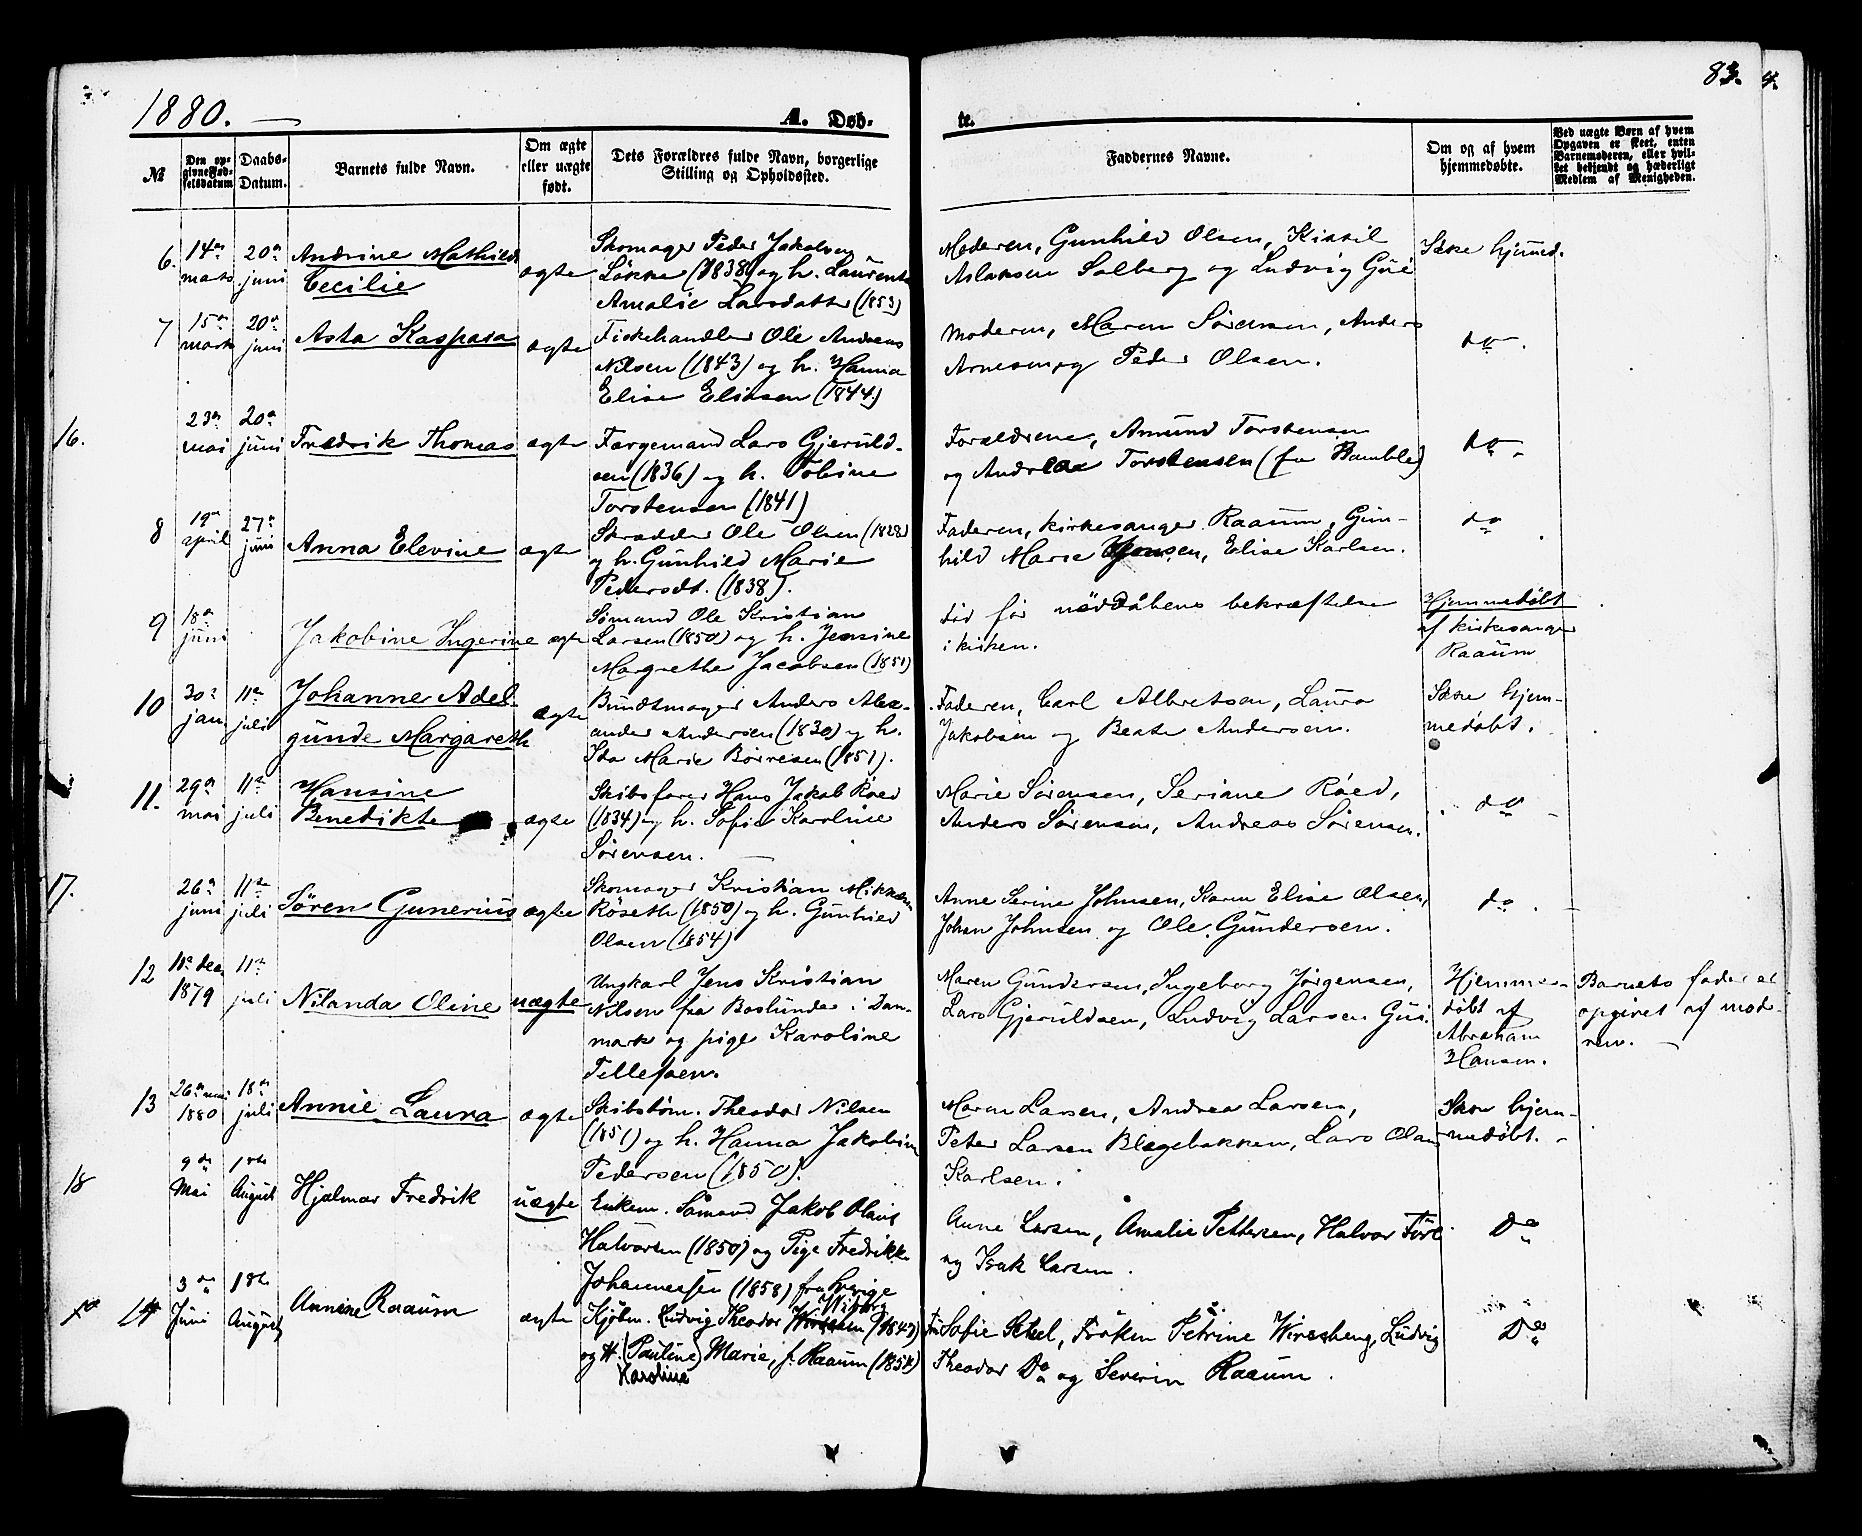 1880.
A. Døb-
te.
83.
4.
№
Den op-
givne Fød-
selsdatum
Daabs-
Datum.
Barnets fulde Navn.
Om ægte
eller uægte
født.
Dets Forældres fulde Navn, borgerlige
Stilling og Opholdssted.
Faddernes Navne.
Om og af hvem
hjemmedøbte.
Ved uægte Børn af hvem
Opgaven er skeet, enten
Barnemoderen, eller hvil-
ket bekjendt og hæderligt
Medlem af Menigheden.
6.
14de
marts
20de
juni
Andrine Mathilde
Cecilie
ægte
Skomager Peder Jakobsen
Løkke (1838) og h. Laurentse
Amalie Larsdatter (1853)
Moderen, Gunhild Olsen, Kittil
Aslaksen Solberg og Ludvig Gui
Ikke hjemmed.
7
15de
marts
20de
juni
Asta Kaspara
ægte
Fiskehandler Ole Andreas
Nilsen (1843) og h. Hanna
Elise Eliasen (1844)
Moderen, Maren Sørensen, Anders
Arnesen og Peder Olsen.
do.
16.
23de
mai
20de
juni
Fredrik Thomas
ægte
Færgemand Lars Gjeruld-
sen (1836) og h. Tobine
Torstensen (1841)
Forældrene, Amund Torstensen
og Andrea Torstensen (fra Bamble)
do.
8
19de
april
27de
juni
Anna Elevine
ægte
Skrædder Ole Olsen (1828)
og h. Gunhild Marie
Pedersdt. (1838).
Faderen, kirkesanger Raaum, Gun-
hild Marie Jensen, Elise Karlsen.
do
9
18de
juni
Jakobine Ingerine
ægte
Sømand Ole Kristian
Larsen (1850) og h. Jensine
Margrethe Jacobsen (1851)
død før nøddåbens bekræftelse
i kirken.
Hjemmedøbt
af kirkesanger
Raaum
10
30te
jan.
11te
juli
Johanne Adel-
gunde Margareth
ægte
Bundtmager Anders Alex-
ander Andersen (1830) og h.
Ida Marie Børresen (1851).
Faderen, Carl Albretsen, Laura
Jakobsen og Beate Andersen.
Ikke hjem-
medøbt.
11.
29de
mai
11te
juli
Hansine
Benedikte
ægte
Skibsfører Hans Jakob Røed
(1834) og h. Sofie Karoline
Sørensen.
Marie Sørensen, Seriane Røed,
Anders Sørensen, Andreas Sørensen.
do
17.
26de
juni
11te
juli
Søren Gunerius
ægte
Skomager Kristian Mikkelsen
Røseth (1850) og h. Gunhild
Olsen (1854)
Anne Serine Johnsen, Karen Elise Olsen,
Johan Johnsen og Ole Gundersen.
do.
12
11te dec.
1879
11te
juli
Nilanda Oline
uægte
Ungkarl Jens Kristian
Nilsen fra Boslunde i Dan-
mark og pige Karoline
Tellefsen.
Maren Gundersen, Ingeborg Jørgensen,
Lars Gjeruldsen, Ludvig Larsen Gui.
Hjemme-
døbt af
Abraham
Hansen.
Barnets fader er
opgivet af mode-
ren.
13
26de mai
1880
18de
juli
Annie Laura
ægte
Skibstøm. Theodor Nilsen
(1851) og h. Hanna Jakobine
Pedersen (1850).
Maren Larsen, Andrea Larsen,
Peter Larsen Blegebakken, Lars Olaus
Karlsen.
Ikke hjem-
medøbt.
18
9de
Mai
1ste
August
Hjalmar Fredrik
uægte
Enkem. Sømand Jakob Olaus
Halvorsen (1850) og Pige Fredrikke
Johannessen (1858) fra Sverige
Anne Larsen, Amalie Pettersen, Halvor
og Isak Larsen.
Do
14
3de
Juni
1ste
August
Annine Raaum
ægte
Kjøbm. Ludvig Theodor Wiborg (1847)
og H. (Pauline) Marie, f. Raaum (1854)
Karoline
Fru Sofie Schel, Frøken Petrine Wirscheng, Ludvig
Theodor Do og Severin Raaum.
Do